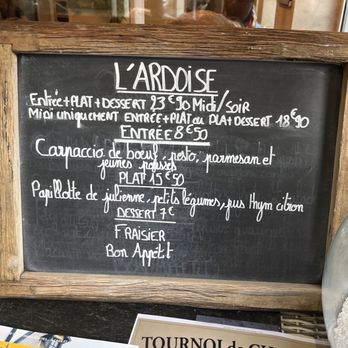 L'ARDOISE
Entrée+PLAT+DESSERT 23€90 Midi/Soir
Midi uniquement ENTRÉE+PLAT ou PLAT+DESSERT 18€90
ENTRÉE 8€50
Carpaccio de boeuf, pesto, parmesan et
jeunes pousses
PLAT 15€50
Papillotte de julienne, petits légumes, jus thym citron
DESSERT 7€
FRAISIER
Bon Appétit
TOURNOI de